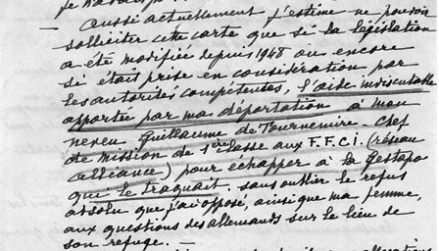 — Aussi actuellement j'estime ne pouvoir
solliciter cette carte que si la législation
a été modifiée depuis 1948 ou encore
si était prise en considération par
les autorités compétentes, l'aide indiscutable
apportée par ma déportation à mon
neveu Guillaume de Tournemire. Chef
de mission de 1ère classe aux F.F.C.I. (réseau
alliance) pour échapper à la Gestapo
qui le traquait. sans oublier le refus
absolu que j'ai opposé, ainsi que ma femme,
aux questions des allemands sur le lieu de
son refuge. —